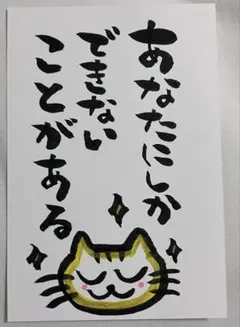 あなたにしか
できない
ことがある